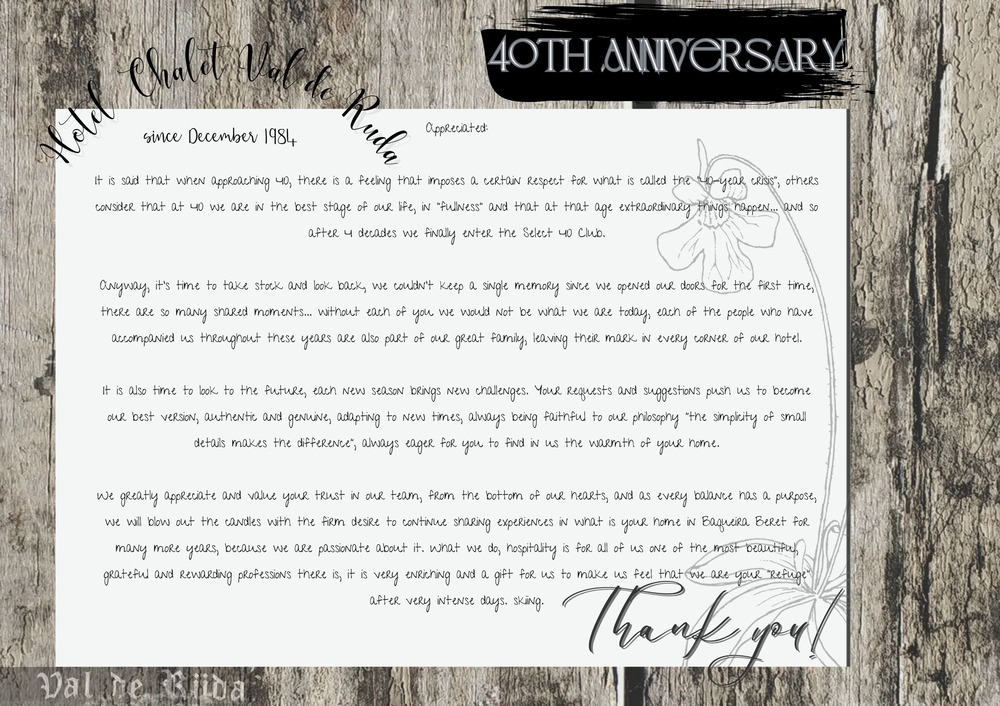 40TH ANNIVERSARY
Hotel Chalet Val de Ruda
since December 1984
Appreciated:
It is said that when approaching 40, there is a feeling that imposes a certain respect for what is called the "40-year crisis", others
consider that at 40 we are in the best stage of our life, in "fullness" and that at that age extraordinary things happen... and so
after 4 decades we finally enter the Select 40 Club.
Anyway, it's time to take stock and look back, we couldn't keep a single memory since we opened our doors for the first time,
there are so many shared moments... without each of you we would not be what we are today, each of the people who have
accompanied us throughout these years are also part of our great family, leaving their mark in every corner of our hotel.
It is also time to look to the future, each new season brings new challenges. Your requests and suggestions push us to become
our best version, authentic and genuine, adapting to new times, always being faithful to our philosophy "the simplicity of small
details makes the difference", always eager for you to find in us the warmth of your home.
We greatly appreciate and value your trust in our team, from the bottom of our hearts, and as every balance has a purpose,
we will blow out the candles with the firm desire to continue sharing experiences in what is your home in Baqueira Beret for
many more years, because we are passionate about it. What we do, hospitality is for all of us one of the most beautiful,
grateful and rewarding professions there is, it is very enriching and a gift for us to make us feel that we are your "refuge"
after very intense days. skiing.
Thank you!
Val de Rüda